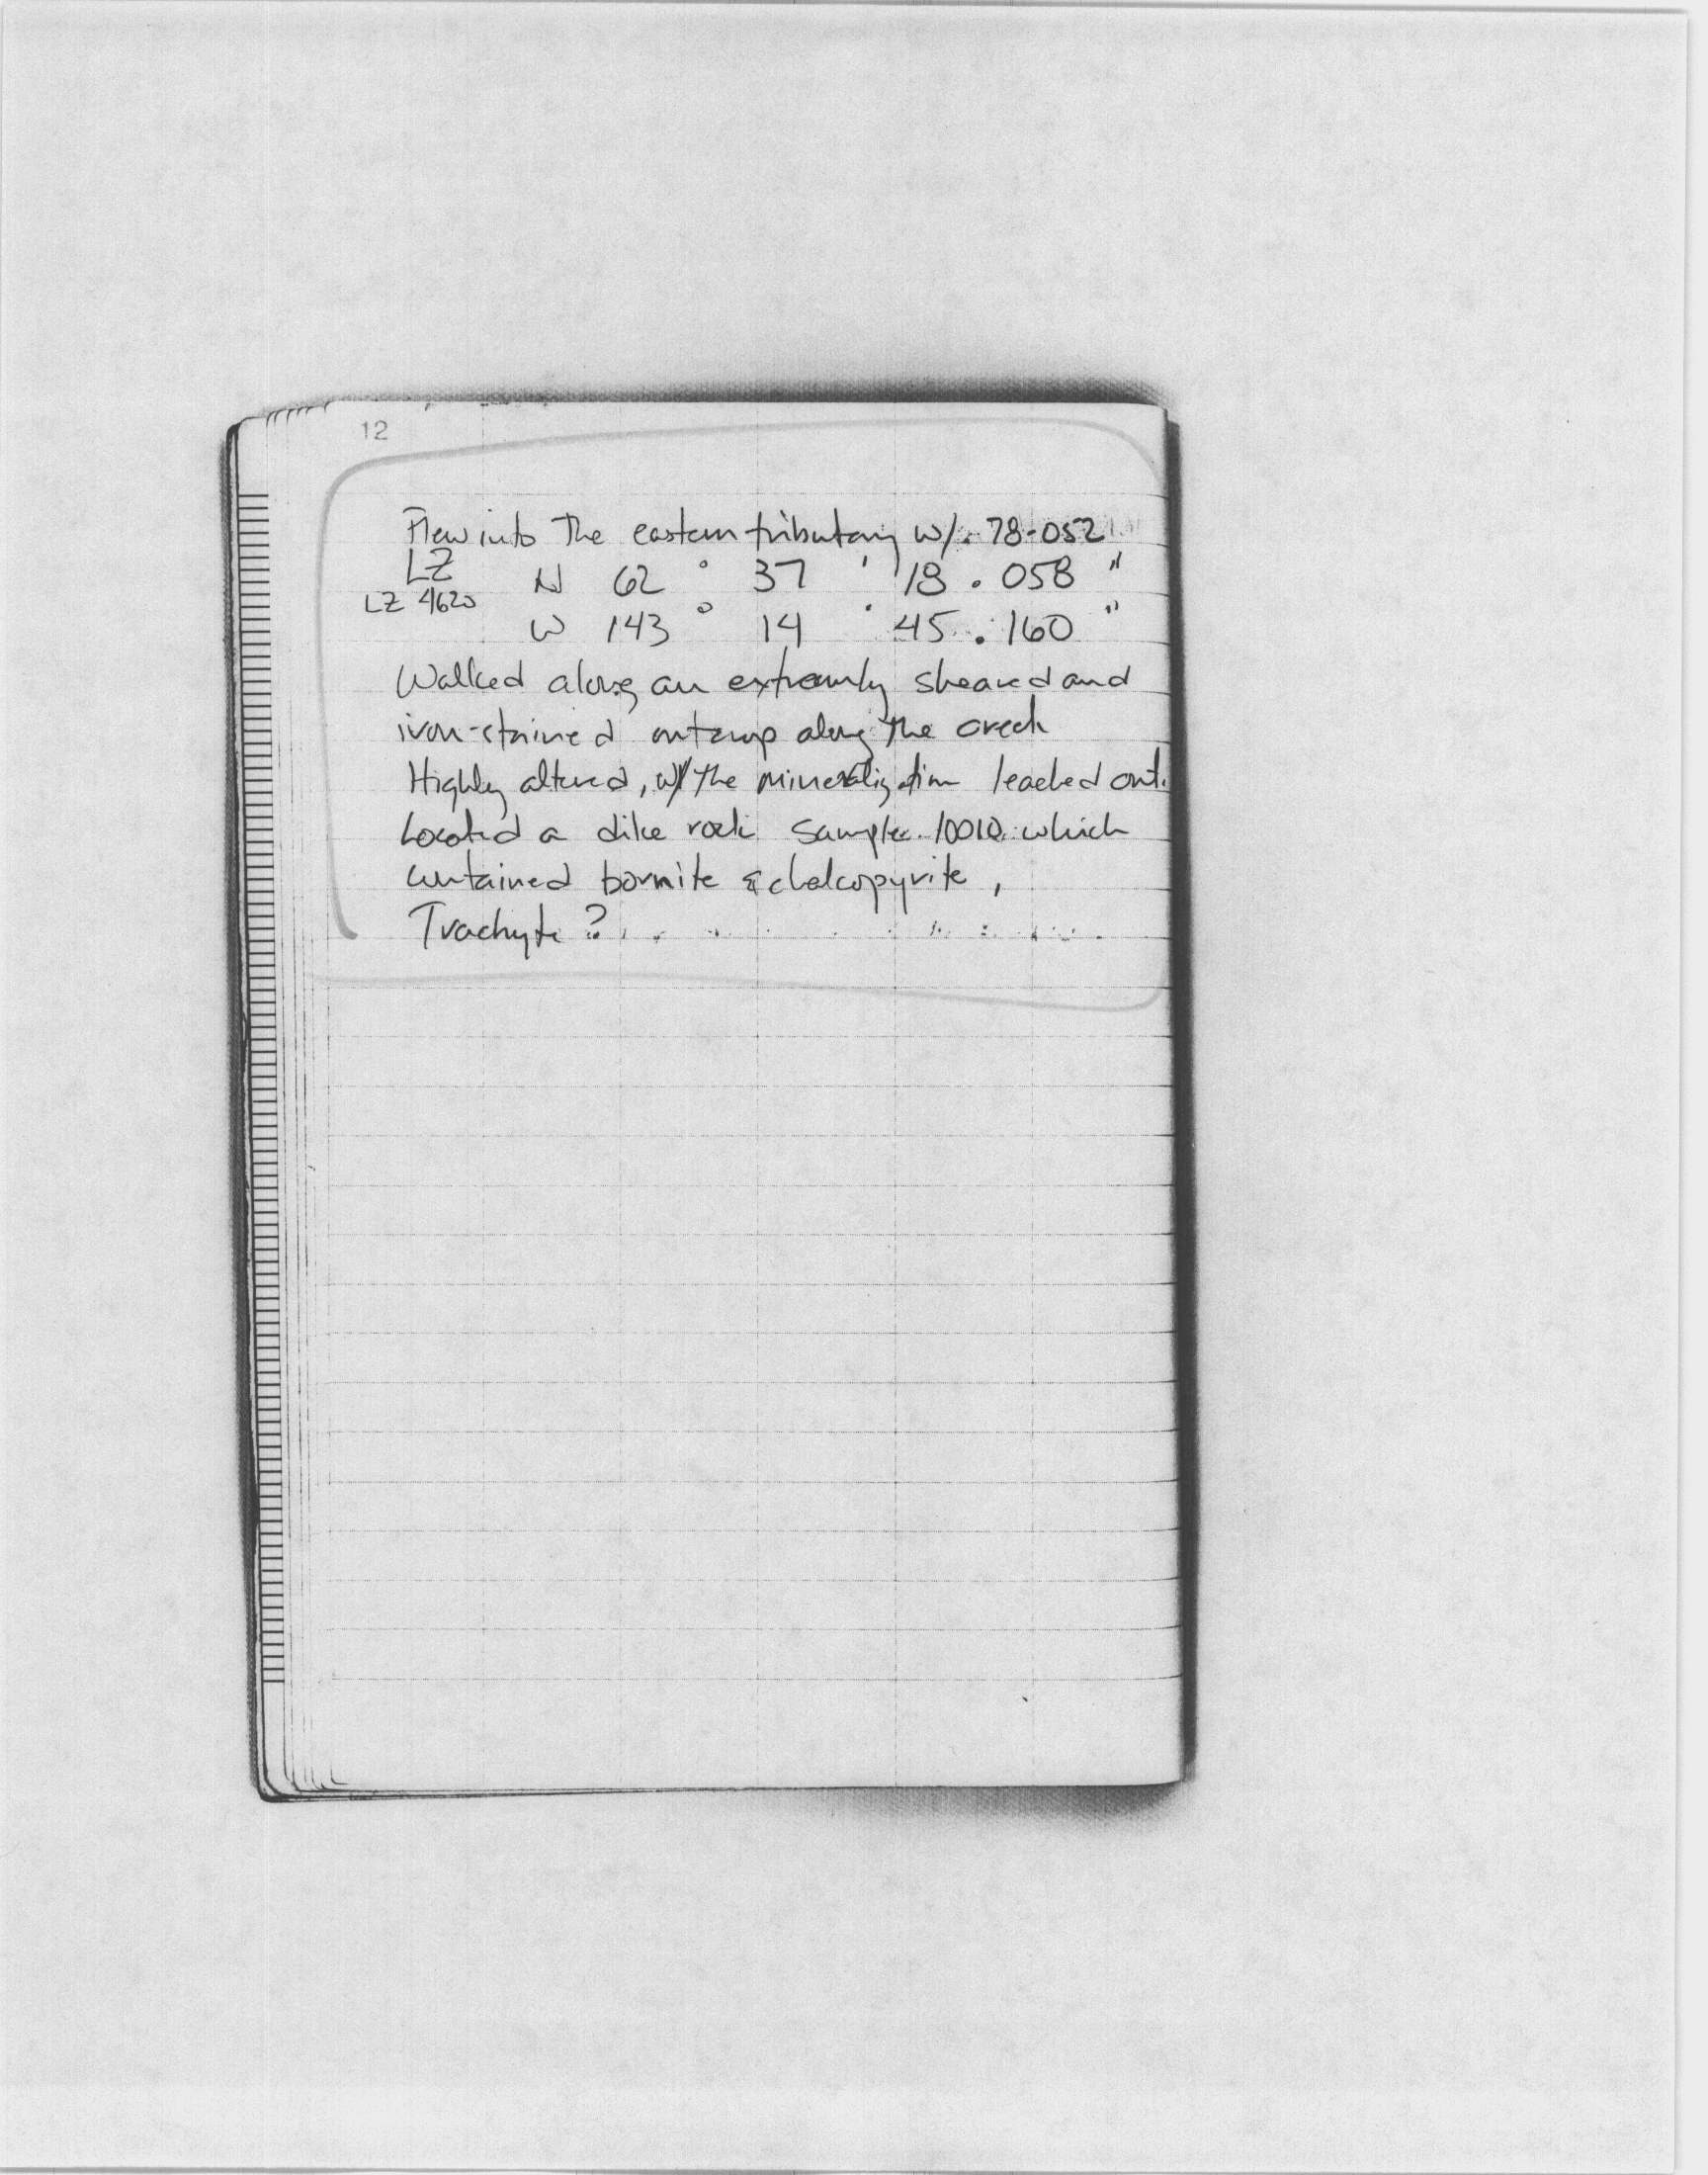 12
Flew into the eastern tributary w/. 78-052
LZ N 62 ° 37 ' 18 . 058 "
LZ 4620
W 143 ° 14 ' 45 . 160 "
Walked along an extremly sheared and
iron-stained outcrop along the creek
Highly altered, w/ the mineralization leached out.
Located a dike rock sample 10010 which
contained bornite & chalcopyrite,
Trachyte ?